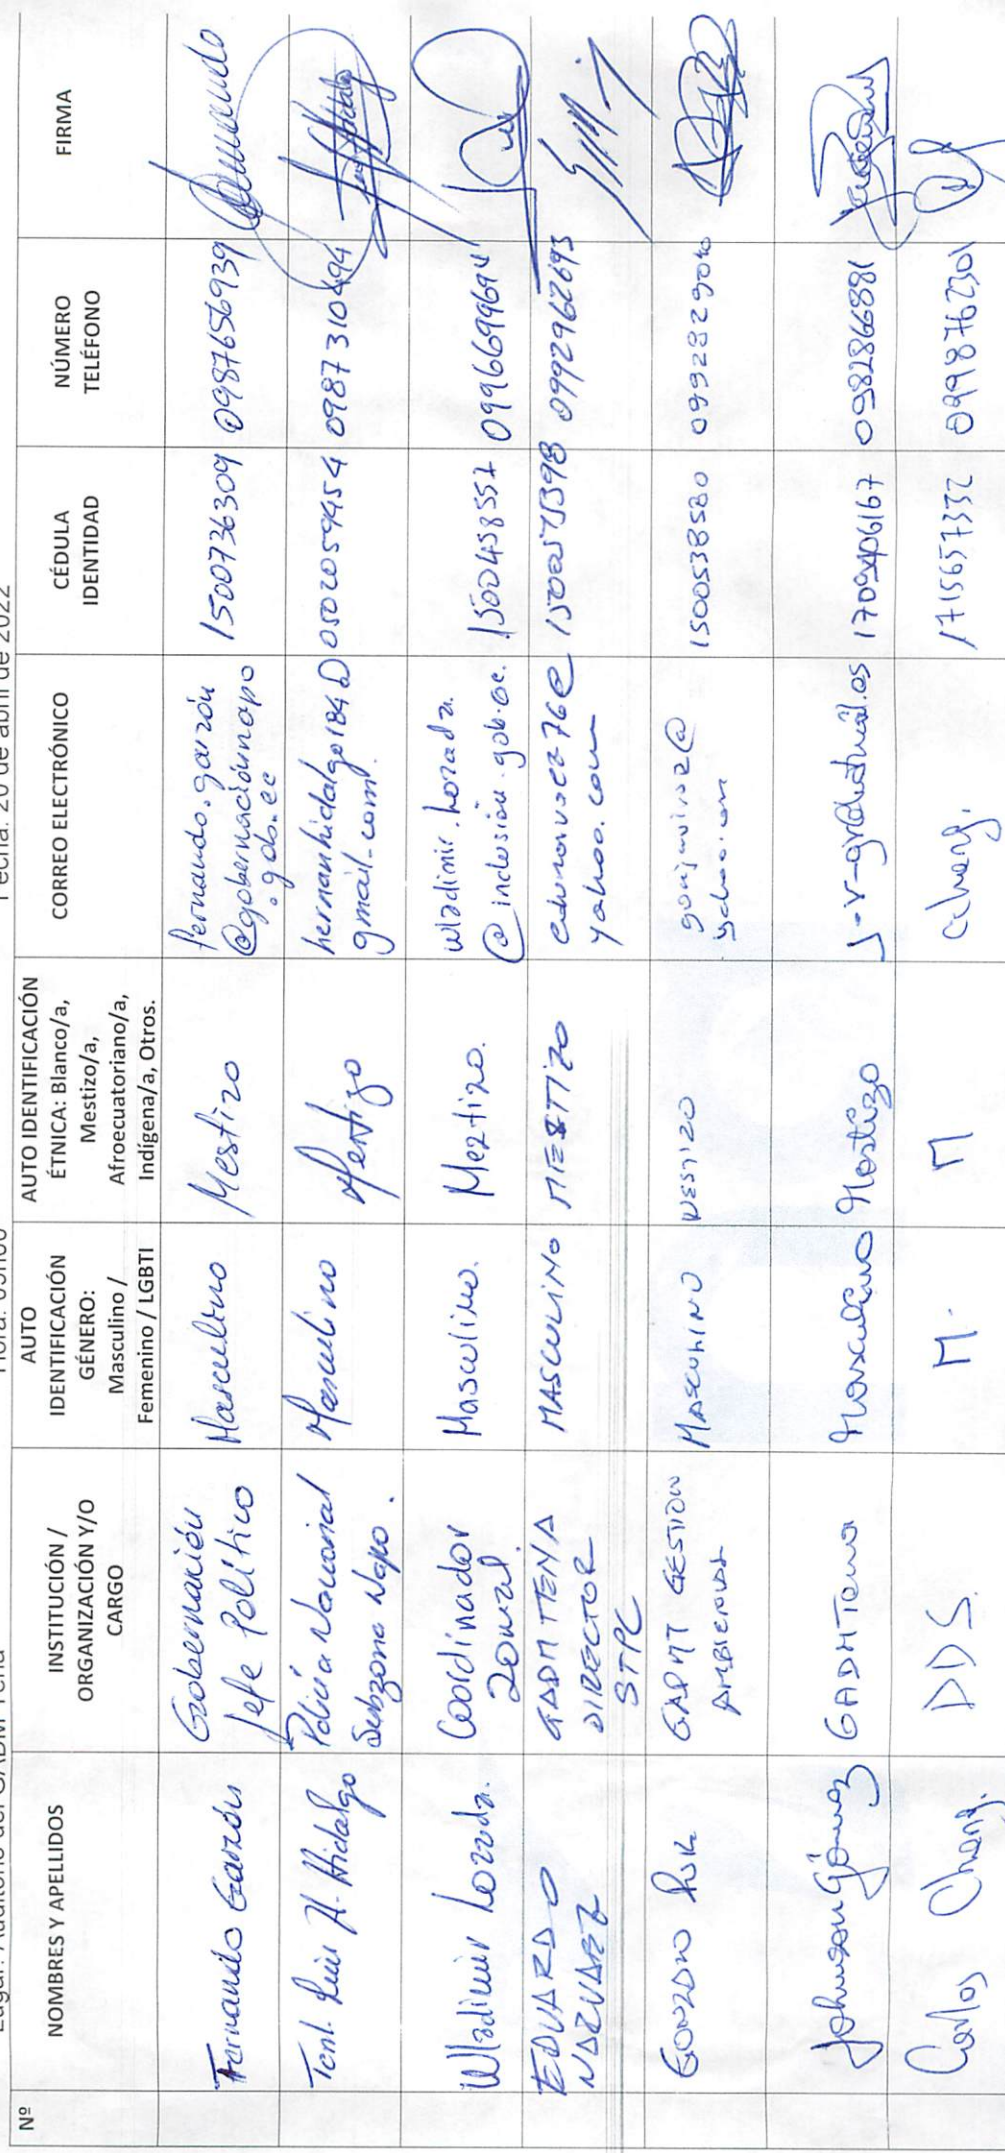 Lugar: Auditorio del GADM Tena
Hora: 09h00
Fecha: 20 de abril de 2022
Nº
NOMBRES Y APELLIDOS
INSTITUCIÓN /
ORGANIZACIÓN Y/O
CARGO
AUTO
IDENTIFICACIÓN
GÉNERO:
Masculino /
Femenino / LGBTI
AUTO IDENTIFICACIÓN
ÉTNICA: Blanco/a,
Mestizo/a,
Afroecuatoriano/a,
Indígena/a, Otros.
CORREO ELECTRÓNICO
CÉDULA
IDENTIDAD
NÚMERO
TELÉFONO
FIRMA
Fernando Garzón
Gobernación
Jefe Político
Masculino
Mestizo
fernando.garzón
@gobernaciónnapo
.gob.ec
1500736309
0987656939
Tcnl. Luis H. Hidalgo
Policía Nacional
Subzona Napo.
Masculino
Mestizo
hernanhidalgo184@
gmail.com.
0502059454
0987310494
Wladimir Lozada.
Coordinador
Zonal.
Masculino.
Meztizo.
wladimir.lozada.
@inclusión.gob.ec.
1500458557
EDUARDO
NARVAEZ
GADM TENA
DIRECTOR
STPC
MASCULINO
MESTIZO
yahoo.com
0992962693
GONZALO
GADMT GESTION
AMBIENTAL
MASCULINO
MESTIZO
1500538580
Johnson Gómez
GADMTena
Masculino
Mestizo
0982866881
Carlos Chang.
DDS.
M.
M
cchang.
1715657332
0998762301